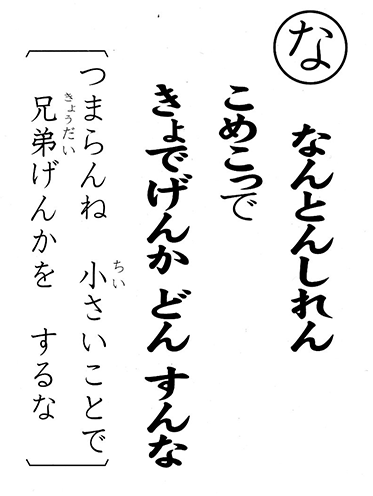 な
なんとんしれん
こめこっで
きょでげんか どん すんな
つまらんね 小さいことで
兄弟げんかを するな
ちい
きょうだい